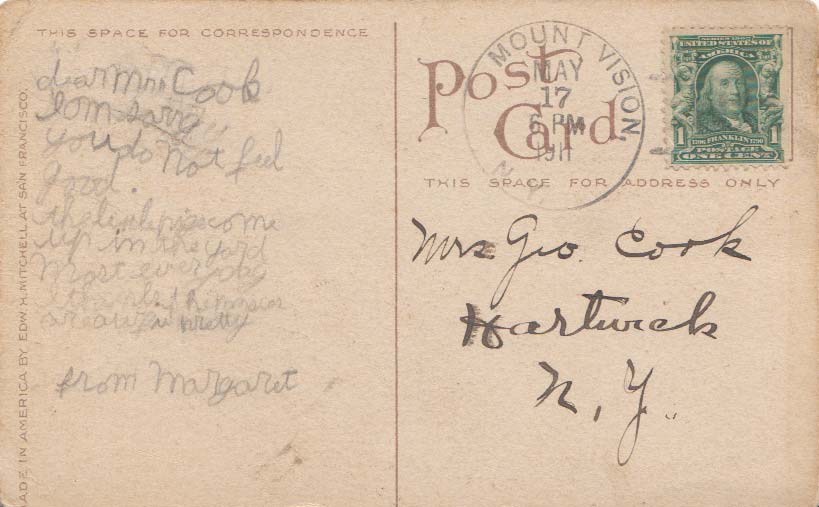 THIS SPACE FOR CORRESPONDENCE
dear Mrs Cook
I am sorry
you do not feel
good.
the little pigs come
up in the yard
most every day
I think the
are awful pretty
from Margaret
MADE IN AMERICA BY EDW. H. MITCHELL AT SAN FRANCISCO.
Post
Card.
MOUNT VISION,
MAY
17
6 PM
1911
SERIES 1902
UNITED STATES OF AMERICA
1
1706 FRANKLIN 1790
POSTAGE
1
ONE CENT
THIS SPACE FOR ADDRESS ONLY
Mrs Geo. Cook
Hartwick
N. Y.